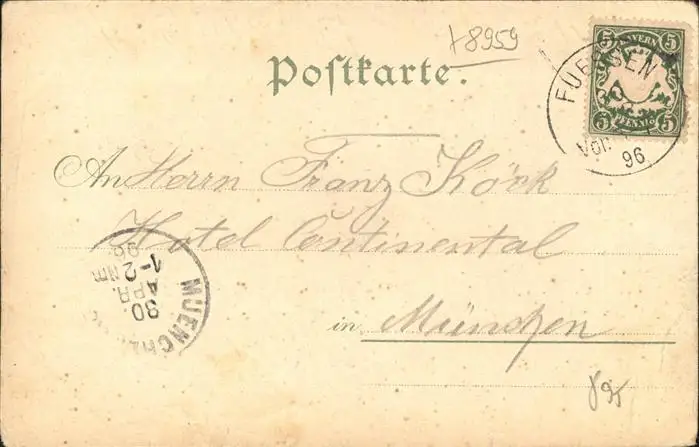 78959
Postkarte.
5 BAYERN 5
5 PFENNIG 5
FUESSEN
Vor
96
An Herrn Franz Köck
Hotel Continental
in München
MUENCH
30.
APR.
1-2 Nm
96.